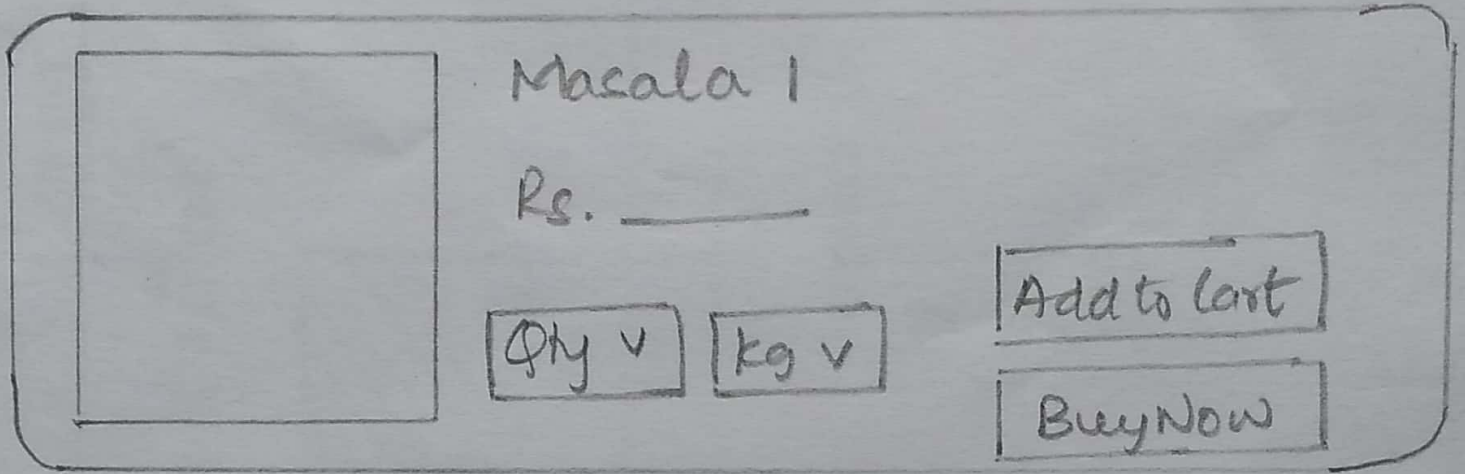 Masala 1
Rs. ______
Qty v
kg v
Add to Cart
Buy Now